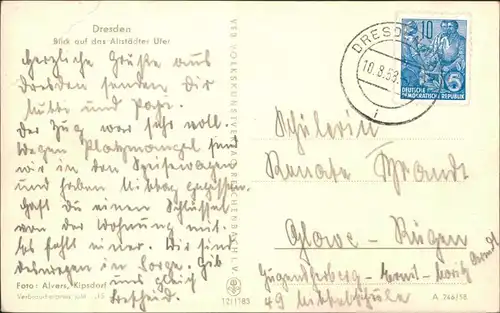 Dresden
Blick auf das Altstädter Ufer
Herzliche Grüße aus
Dresden senden dir
Mutti und Papa.
Der Zug war sehr voll.
Wegen Platzmangel sind
wir in den Speisewagen
und haben Mittag gegessen.
Hast du einen Schlüssel
von der Wohnung mit.
Es fehlt einer. Wir sind
deswegen in Sorge. Gib
uns gleich
Bescheid.
Foto: Alvers, Kipsdorf
Verbraucherpreis
VEB VOLKSKUNSTVERLAG REICHENBACH I. V.
12/1183
DRESDEN
10.8.58
10
5
DEUTSCHE
DEMOKRATISCHE REPUBLIK
Schülerin
Renate Brandt
Glowe - Rügen
Jugendherberg - Ernst-Moritz Arndt
49 Mittelschule
A 246/58